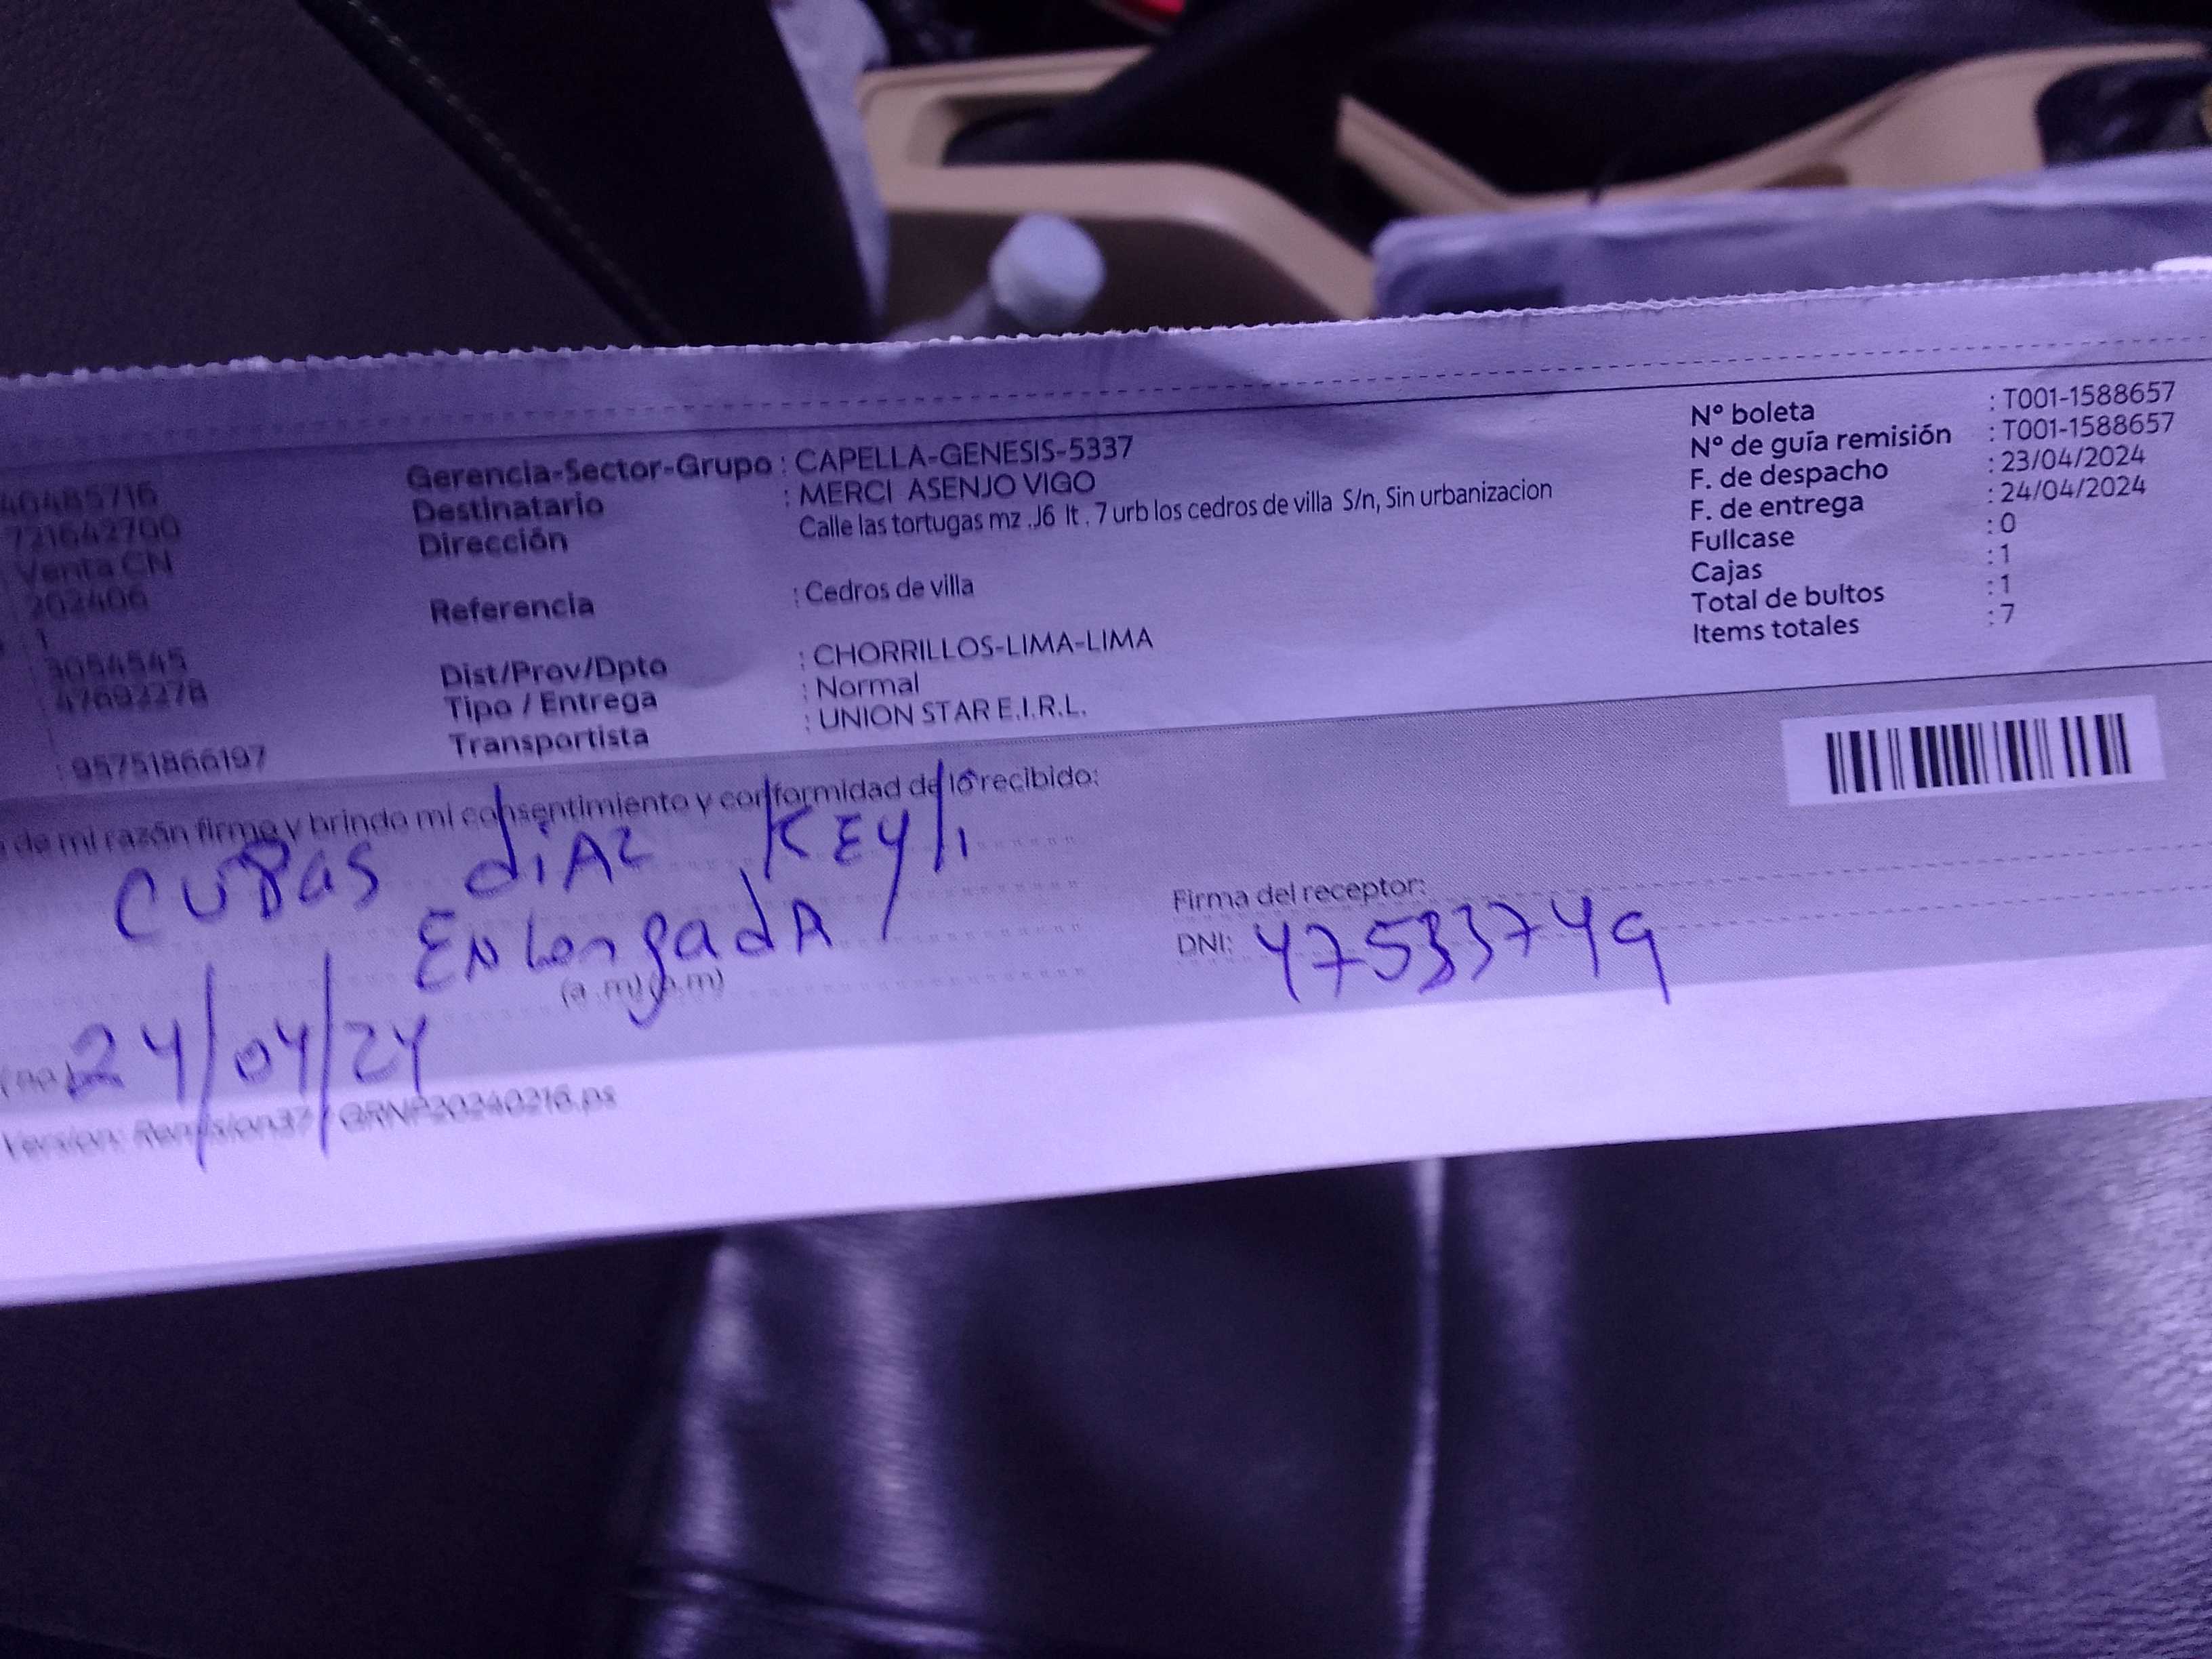 40485716
721642700
Venta CN
202406
1
3054545
47693278
: 95751866197
Gerencia-Sector-Grupo : CAPELLA-GENESIS-5337
Destinatario : MERCI ASENJO VIGO
Dirección Calle las tortugas mz .J6 lt . 7 urb los cedros de villa S/n, Sin urbanizacion
Referencia : Cedros de villa
Dist/Prov/Dpto : CHORRILLOS-LIMA-LIMA
Tipo / Entrega : Normal
Transportista : UNION STAR E.I.R.L.
N° boleta : T001-1588657
N° de guía remisión : T001-1588657
F. de despacho : 23/04/2024
F. de entrega : 24/04/2024
Fullcase : 0
Cajas : 1
Total de bultos : 1
Items totales : 7
de mi razón firmo y brindo mi consentimiento y conformidad de lo recibido:
CUBAS diAZ KEYli
(a.m) (p.m)
24/04/24
Firma del receptor:
DNI: 47533749
Version: Remision37 GRNP20240216.ps